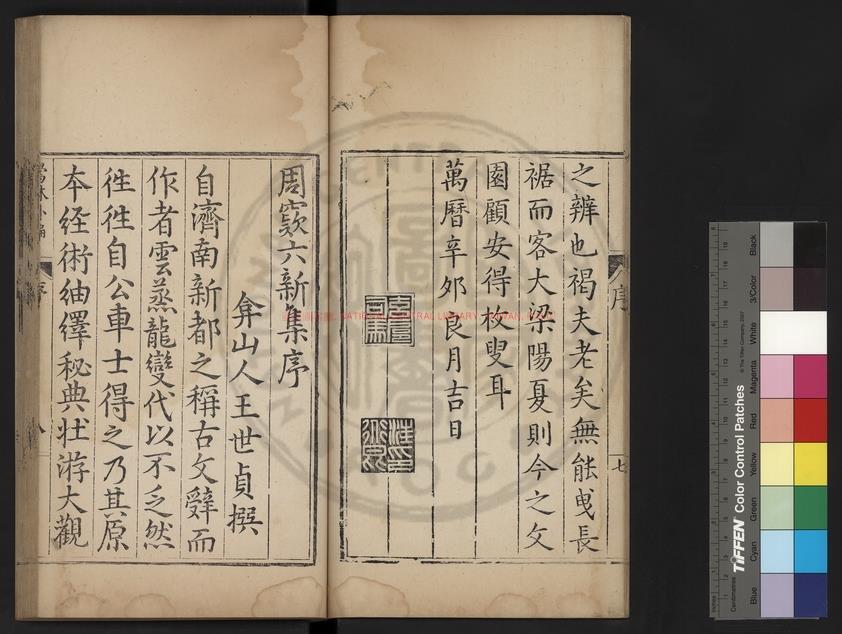 之辨也褐夫老矣無能曳長
裾而客大梁陽夏則今之文
園顧安得枚叟耳
萬曆辛卯良月吉日
序
七
周窽六新集序
弇山人王世貞撰
自濟南新都之稱古文辭而
作者雲蒸龍變代以不乏然
徃徃自公車士得之乃其原
夲經術紬繹秘典壯游大觀
序
八
NATIONAL CENTRAL LIBRARY
TIFFEN Color Control Patches
© The Tiffen Company, 2007
Centimetres
Blue
Cyan
Green
Yellow
Red
Magenta
White
3/Color
Black